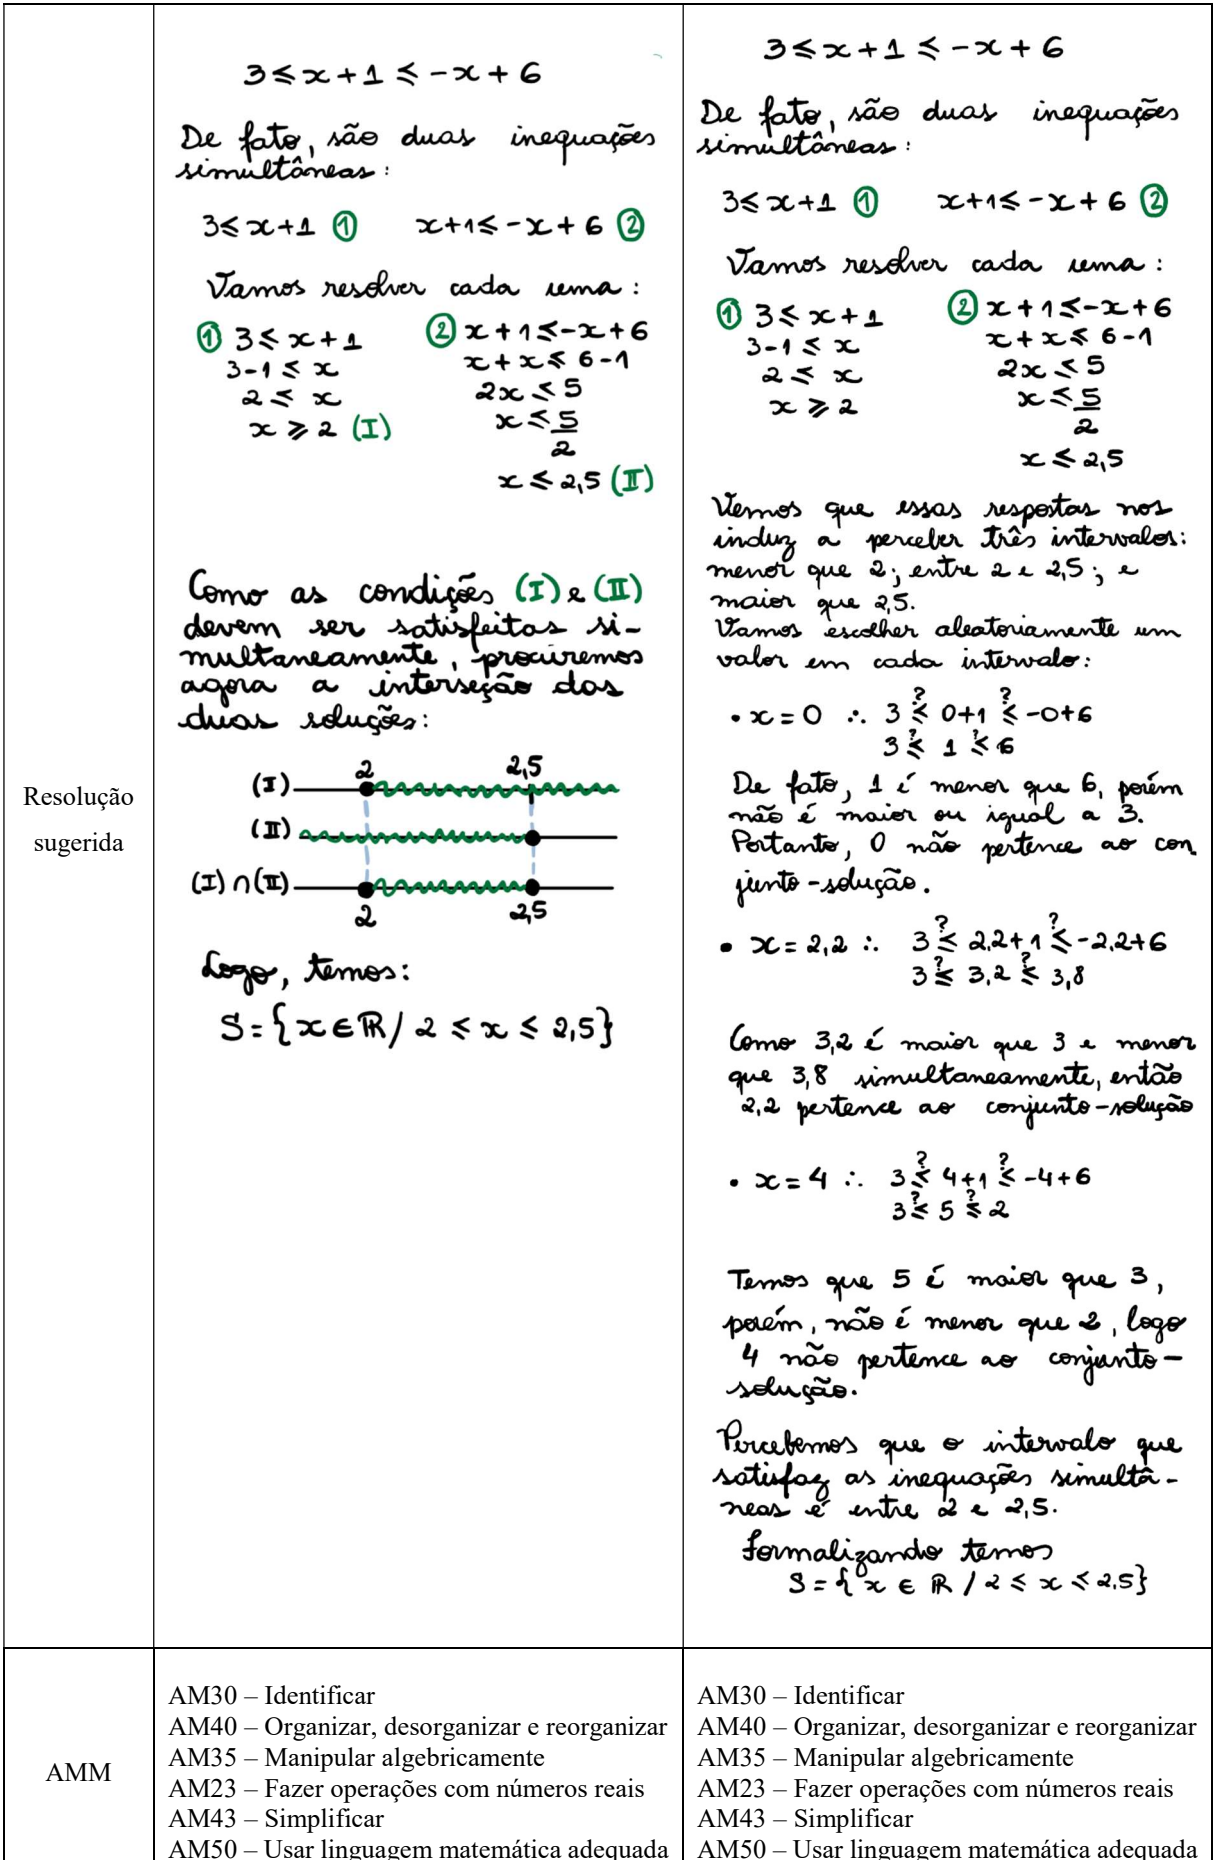 Resolução
sugerida
3 ≤ x + 1 ≤ -x + 6
De fato, são duas inequações
simultâneas:
3 ≤ x + 1 ① x + 1 ≤ -x + 6 ②
Vamos resolver cada uma:
① 3 ≤ x + 1 ② x + 1 ≤ -x + 6
3 - 1 ≤ x x + x ≤ 6 - 1
2 ≤ x 2x ≤ 5
x ≥ 2 (I) x ≤ 5/2
x ≤ 2,5 (II)
Como as condições (I) e (II)
devem ser satisfeitas si-
multaneamente, procuremos
agora a interseção das
duas soluções:
2 2,5
(I)
(II)
(I) ∩ (II)
2 2,5
Logo, temos:
S = { x ∈ ℝ / 2 ≤ x ≤ 2,5}
3 ≤ x + 1 ≤ -x + 6
De fato, são duas inequações
simultâneas:
3 ≤ x + 1 ① x + 1 ≤ -x + 6 ②
Vamos resolver cada uma:
① 3 ≤ x + 1 ② x + 1 ≤ -x + 6
3 - 1 ≤ x x + x ≤ 6 - 1
2 ≤ x 2x ≤ 5
x ≥ 2 x ≤ 5/2
x ≤ 2,5
Vemos que essas respostas nos
induz a perceber três intervalos:
menor que 2; entre 2 e 2,5; e
maior que 2,5.
Vamos escolher aleatoriamente um
valor em cada intervalo:
• x = 0 ∴ 3 ≤? 0+1 ≤? -0+6
3 ≤? 1 ≤? 6
De fato, 1 é menor que 6, porém
não é maior ou igual a 3.
Portanto, 0 não pertence ao con
junto-solução.
• x = 2,2 ∴ 3 ≤? 2,2+1 ≤? -2,2+6
3 ≤? 3,2 ≤? 3,8
Como 3,2 é maior que 3 e menor
que 3,8 simultaneamente, então
2,2 pertence ao conjunto-solução
• x = 4 ∴ 3 ≤? 4+1 ≤? -4+6
3 ≤? 5 ≤? 2
Temos que 5 é maior que 3,
porém, não é menor que 2, logo
4 não pertence ao conjunto-
solução.
Percebemos que o intervalo que
satisfaz as inequações simultâ-
neas é entre 2 e 2,5.
Formalizando temos
S = { x ∈ ℝ / 2 ≤ x ≤ 2,5}
AMM
AM30 – Identificar
AM40 – Organizar, desorganizar e reorganizar
AM35 – Manipular algebricamente
AM23 – Fazer operações com números reais
AM43 – Simplificar
AM50 – Usar linguagem matemática adequada
AM30 – Identificar
AM40 – Organizar, desorganizar e reorganizar
AM35 – Manipular algebricamente
AM23 – Fazer operações com números reais
AM43 – Simplificar
AM50 – Usar linguagem matemática adequada